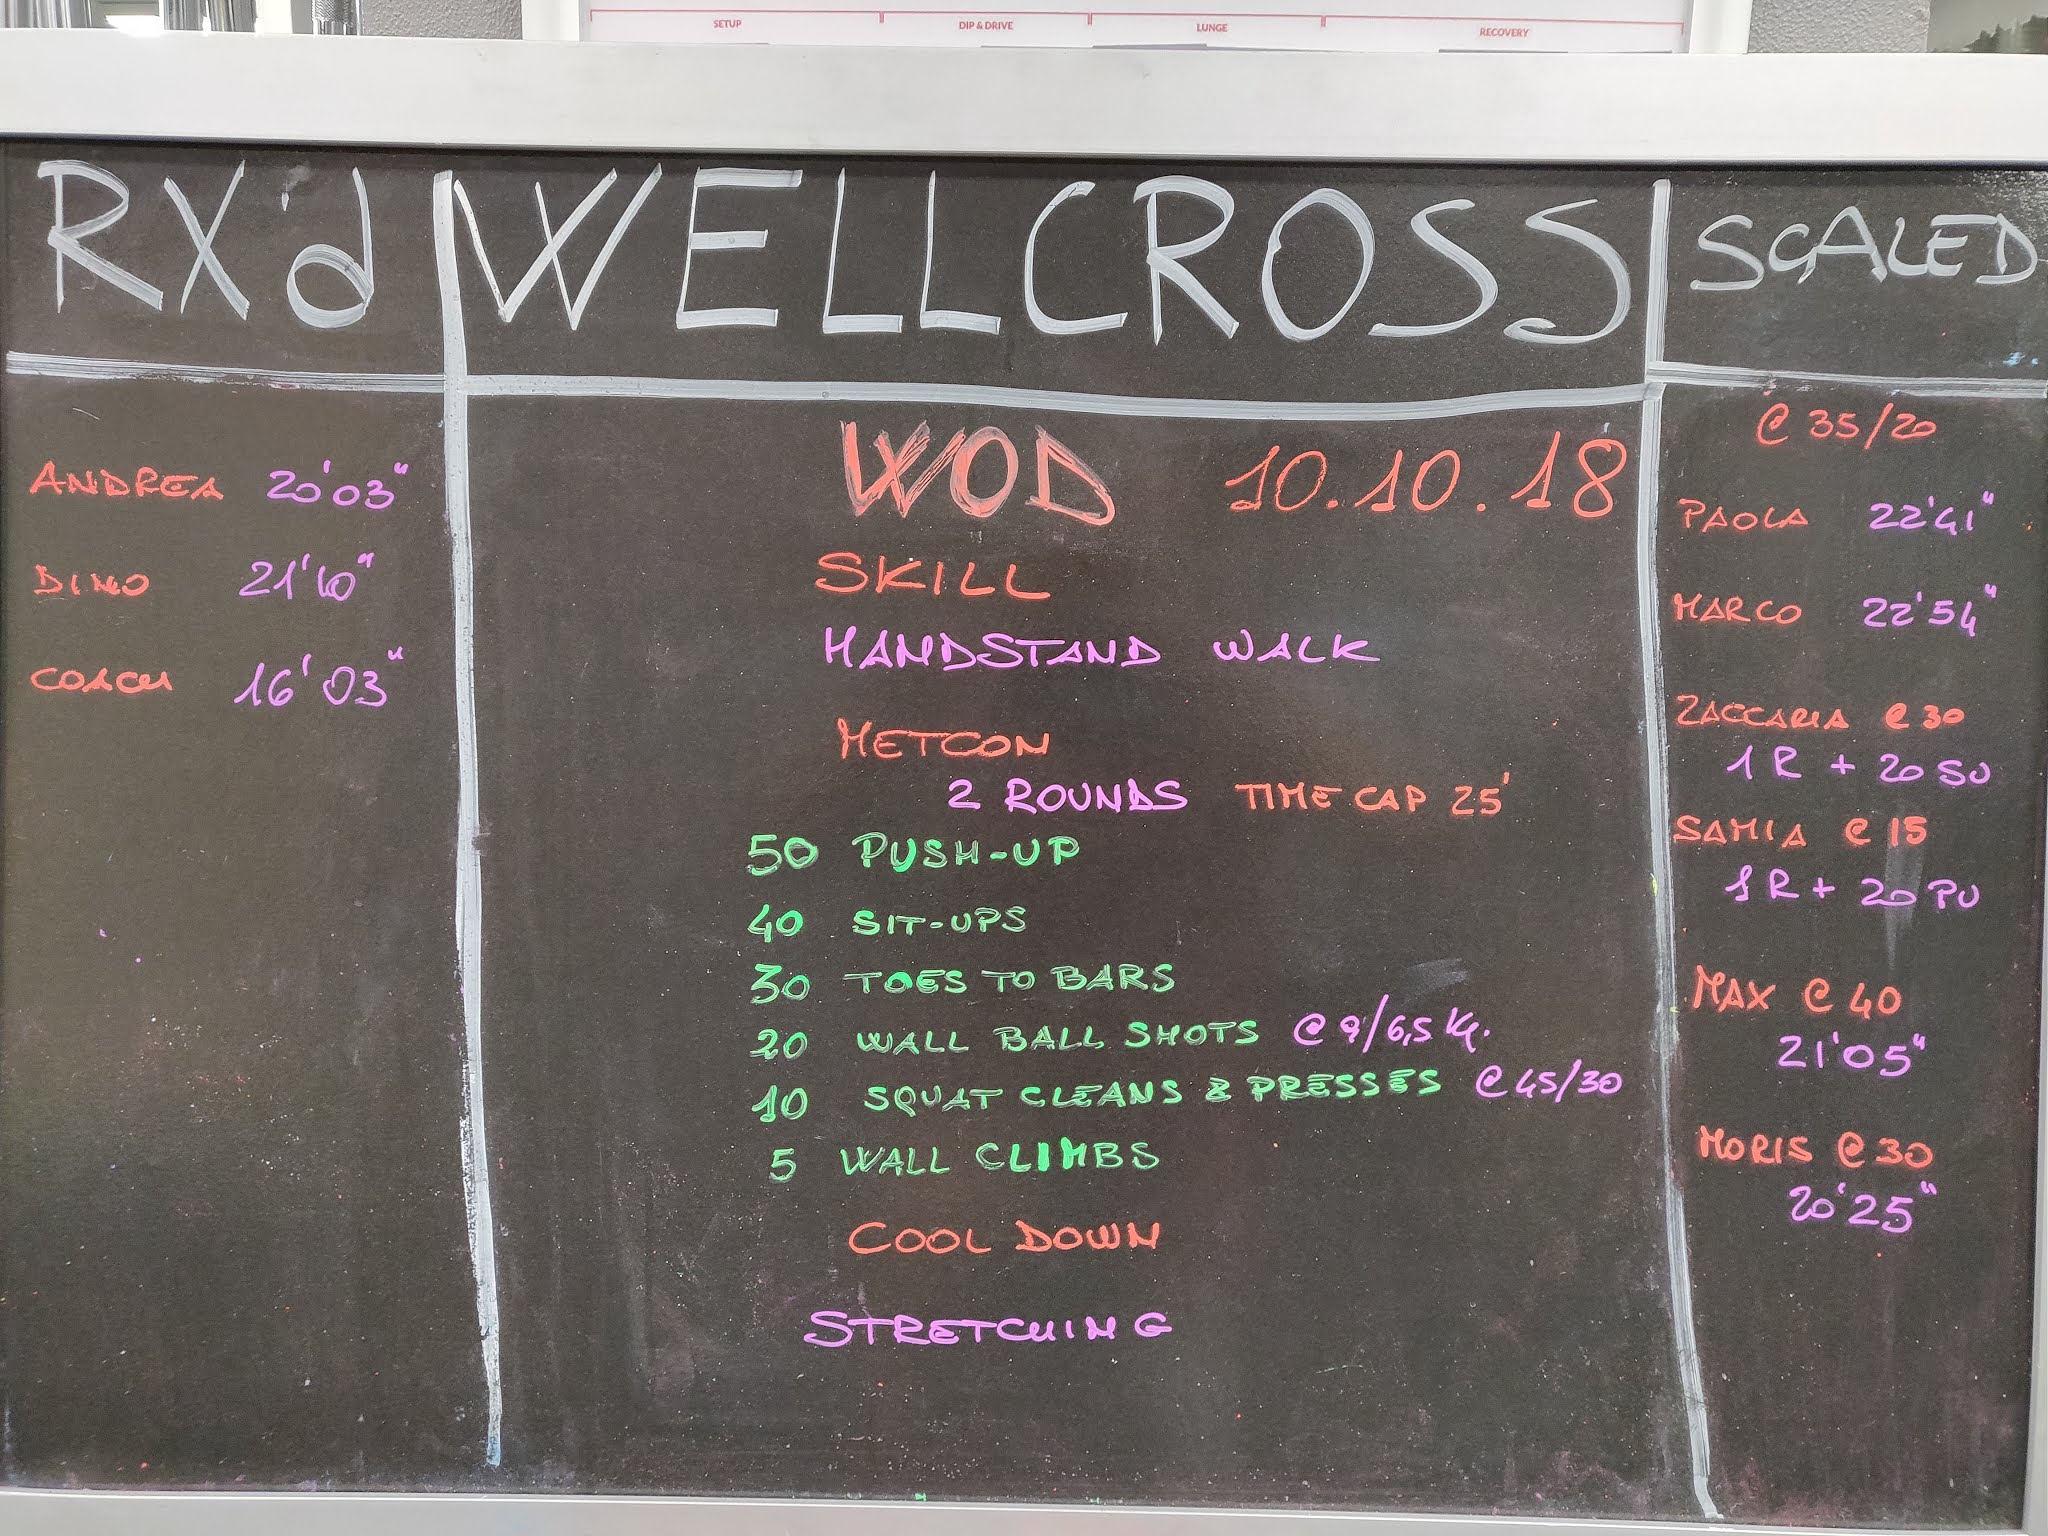 SETUP DIP & DRIVE LUNGE RECOVERY
RX'd
ANDREA 20'03"
DINO 21'10"
COACH 16'03"
WELLCROSS
WOD 10.10.18
SKILL
HANDSTAND WALK
METCON
2 ROUNDS TIME CAP 25'
50 PUSH-UP
40 SIT-UPS
30 TOES TO BARS
20 WALL BALL SHOTS @ 9/6,5 Kg.
10 SQUAT CLEANS & PRESSES @ 45/30
5 WALL CLIMBS
COOL DOWN
STRETCHING
SCALED
@ 35/20
PAOLA 22'41"
MARCO 22'54"
ZACCARIA @ 30
1 R + 20 SU
SAMIA @ 15
1 R + 20 PU
MAX @ 40
21'05"
MORIS @ 30
20'25"